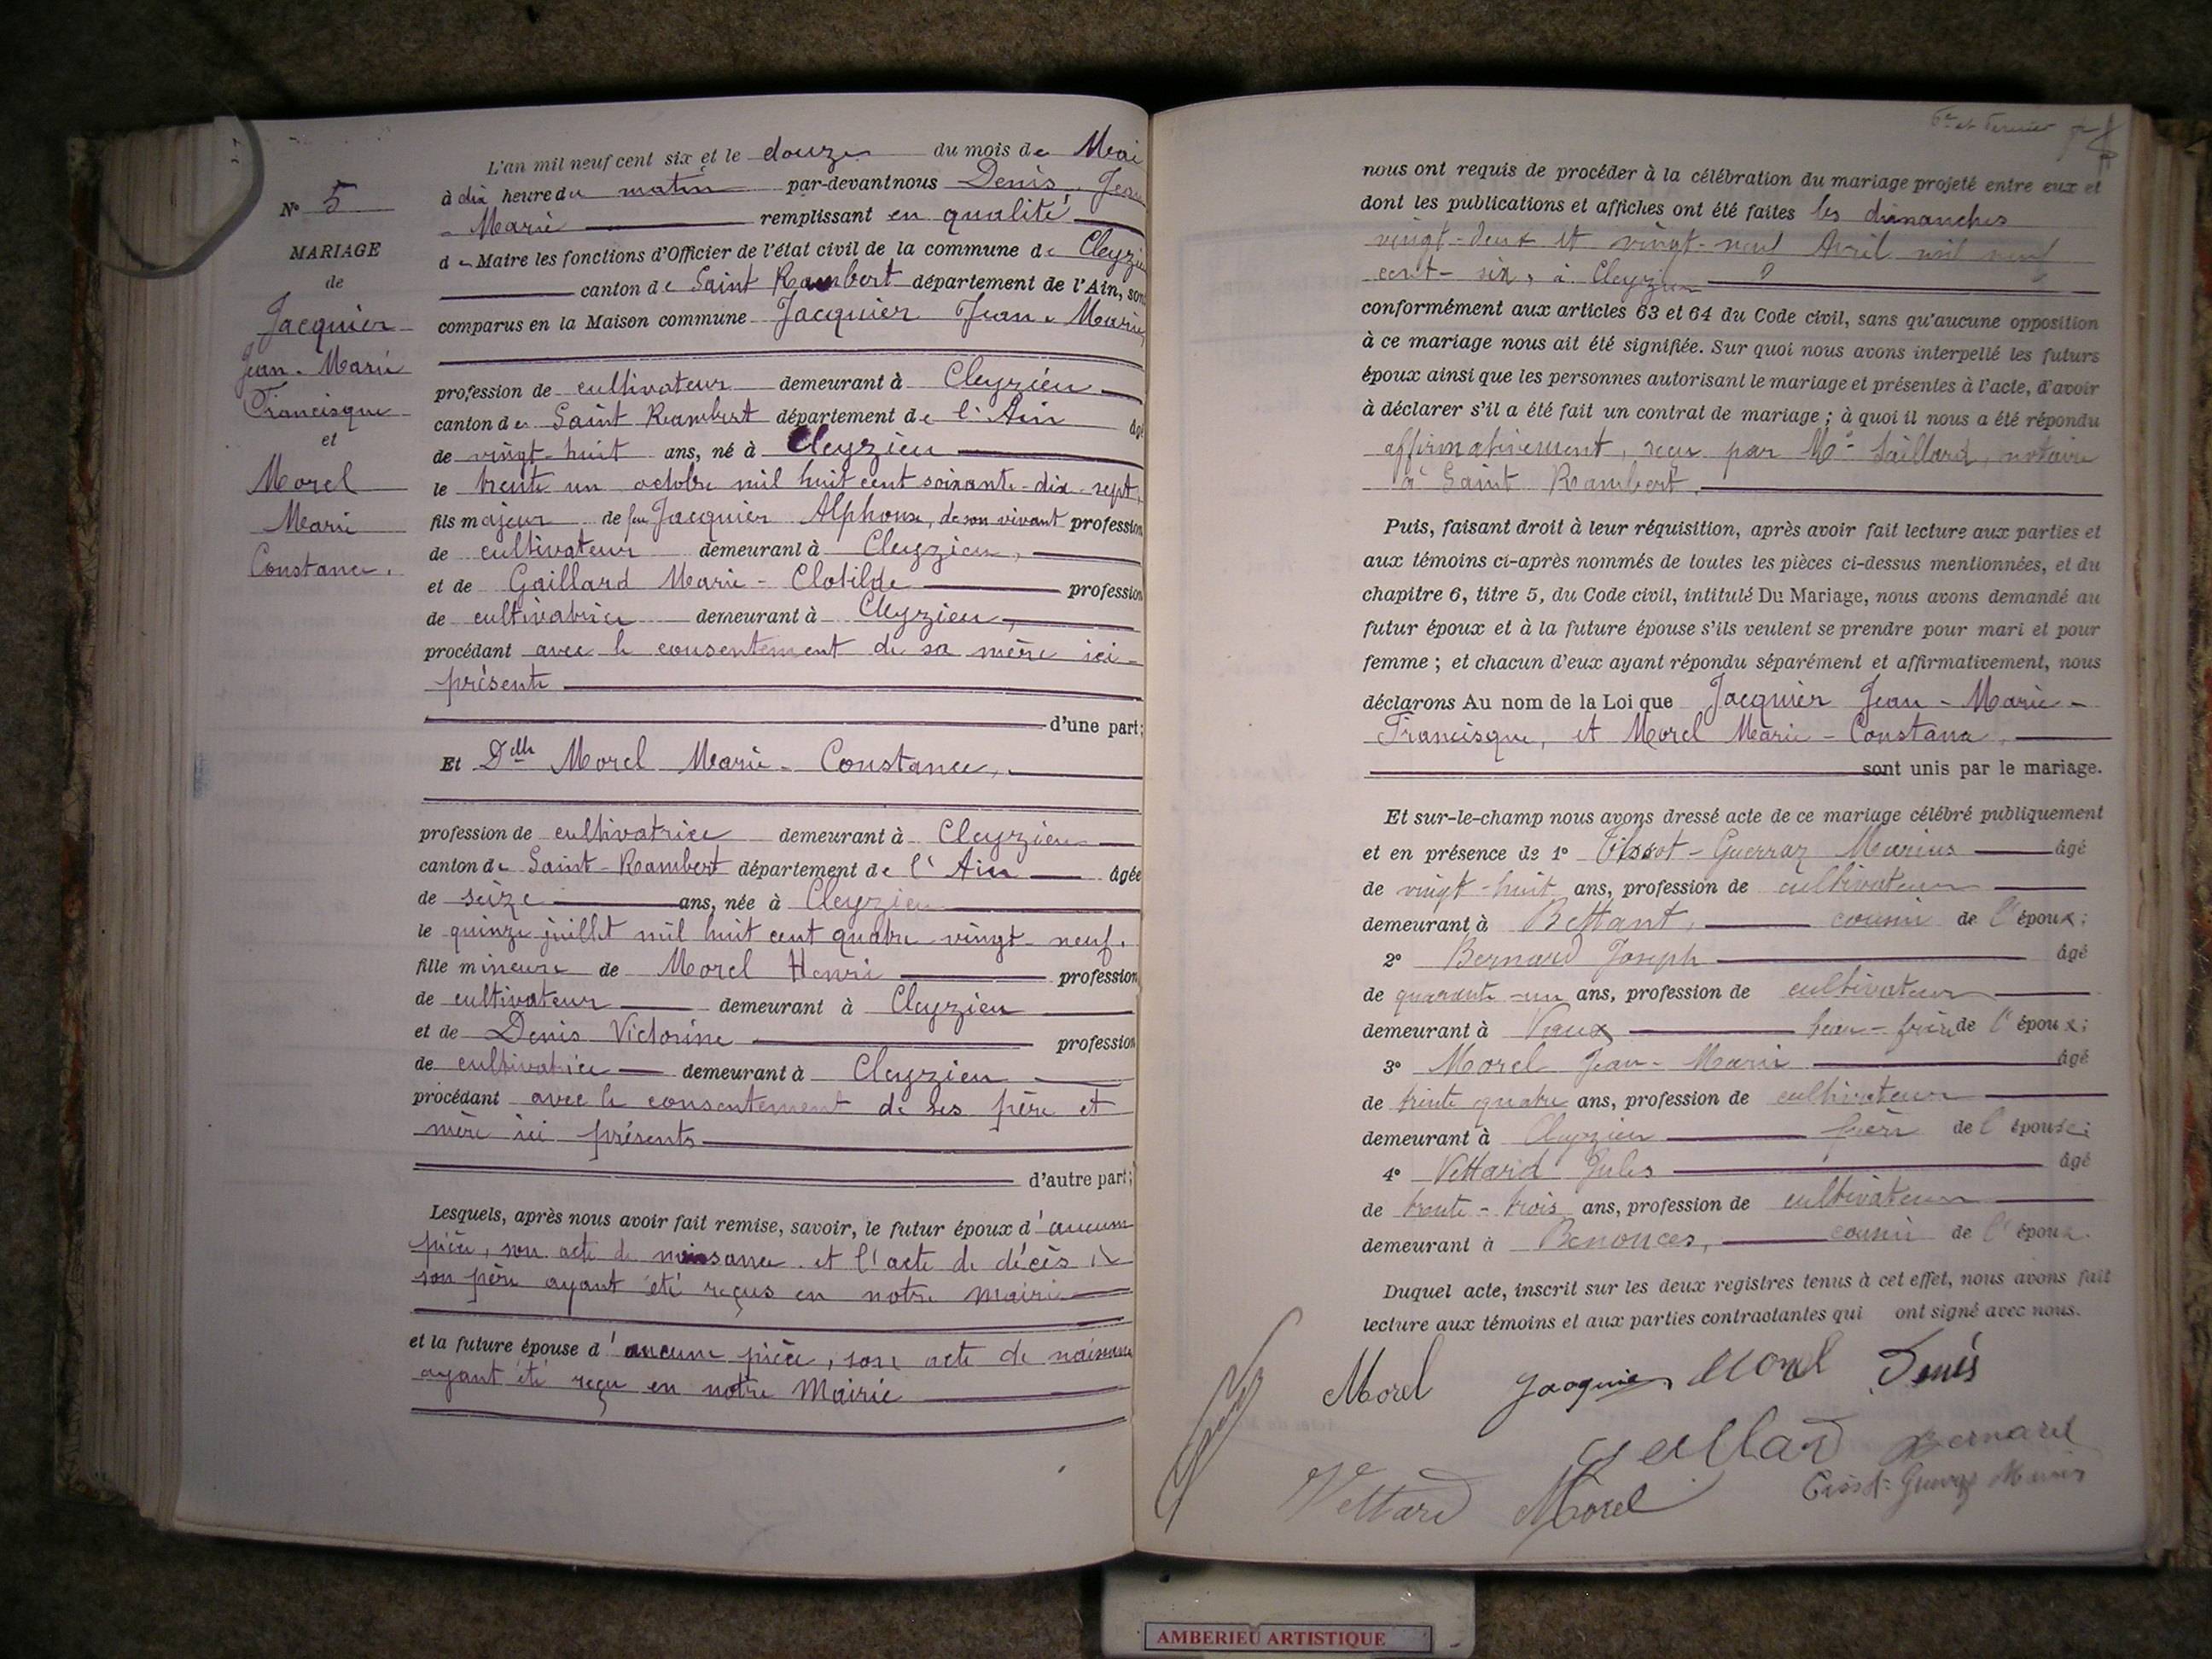 N° 5
MARIAGE
de
Jacquier
Jean-Marie
Francisque
et
Morel
Marie
Constance.
L'an mil neuf cent six et le douze du mois de Mai
à dix heure du matin par-devant nous Denis Jean
Marie remplissant en qualité
de Maire les fonctions d'Officier de l'état civil de la commune de Cleyzieu
canton de Saint Rambert département de l'Ain, sont
comparus en la Maison commune Jacquier Jean-Marie,
profession de cultivateur demeurant à Cleyzieu
canton de Saint Rambert département de l'Ain âgé
de vingt-huit ans, né à Cleyzieu
le trente un octobre mil huit cent soixante-dix-sept,
fils majeur de feu Jacquier Alphonse, de son vivant profession
de cultivateur demeurant à Cleyzieu,
et de Gaillard Marie-Clotilde profession
de cultivatrice demeurant à Cleyzieu,
procédant avec le consentement de sa mère ici
présente
d'une part;
Et Dlle Morel Marie-Constance,
profession de cultivatrice demeurant à Cleyzieu
canton de Saint-Rambert département de l'Ain âgée
de seize ans, née à Cleyzieu
le quinze juillet mil huit cent quatre-vingt-neuf.
fille mineure de Morel Henri profession
de cultivateur demeurant à Cleyzieu
et de Denis Victorine profession
de cultivatrice demeurant à Cleyzieu
procédant avec le consentement de ses père et
mère ici présents
d'autre part;
Lesquels, après nous avoir fait remise, savoir, le futur époux d'aucune
pièce, son acte de naissance et l'acte de décès de
son père ayant été reçus en notre mairie
et la future épouse d'aucune pièce, son acte de naissance
ayant été reçu en notre Mairie
nous ont requis de procéder à la célébration du mariage projeté entre eux et
dont les publications et affiches ont été faites les dimanches
vingt-deux et vingt-neuf Avril mil neuf
cent-six, à Cleyzieu
conformément aux articles 63 et 64 du Code civil, sans qu'aucune opposition
à ce mariage nous ait été signifiée. Sur quoi nous avons interpellé les futurs
époux ainsi que les personnes autorisant le mariage et présentes à l'acte, d'avoir
à déclarer s'il a été fait un contrat de mariage ; à quoi il nous a été répondu
affirmativement, reçu par Me Saillard, notaire
à Saint Rambert.
Puis, faisant droit à leur réquisition, après avoir fait lecture aux parties et
aux témoins ci-après nommés de toutes les pièces ci-dessus mentionnées, et du
chapitre 6, titre 5, du Code civil, intitulé Du Mariage, nous avons demandé au
futur époux et à la future épouse s'ils veulent se prendre pour mari et pour
femme ; et chacun d'eux ayant répondu séparément et affirmativement, nous
déclarons Au nom de la Loi que Jacquier Jean-Marie-
Francisque, et Morel Marie-Constance,
sont unis par le mariage.
Et sur-le-champ nous avons dressé acte de ce mariage célébré publiquement
et en présence de 1° Tissot-Guerraz Marius âgé
de vingt-huit ans, profession de cultivateur
demeurant à Bettant, cousin de l'époux;
2° Bernard Joseph âgé
de quarante-un ans, profession de cultivateur
demeurant à Vaux beau-frère de l'époux;
3° Morel Jean-Marie âgé
de trente quatre ans, profession de cultivateur
demeurant à Cleyzieu frère de l'épouse;
4° Vettard Jules âgé
de trente-trois ans, profession de cultivateur
demeurant à Benonces, cousin de l'époux.
Duquel acte, inscrit sur les deux registres tenus à cet effet, nous avons fait
lecture aux témoins et aux parties contractantes qui ont signé avec nous.
Morel Jacquier Morel Denis
Gaillard Bernard
Vettard Morel Tissot-Guerraz Marius
AMBERIEU ARTISTIQUE